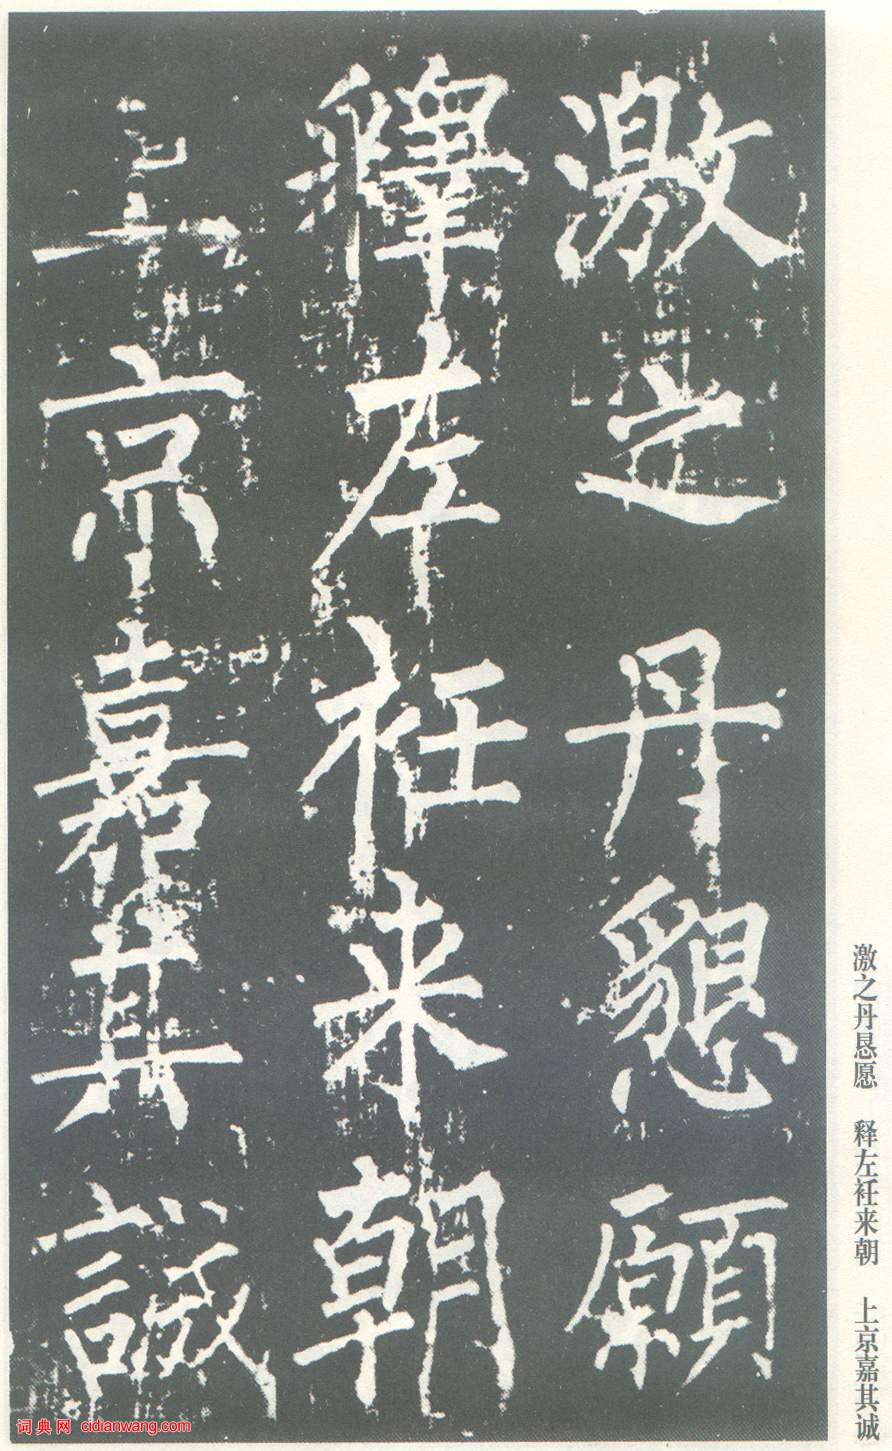 激之丹懇願
釋左衽来朝
上京嘉其誠
激之丹恳愿 释左衽来朝 上京嘉其诚
词典网 cidianwang.com